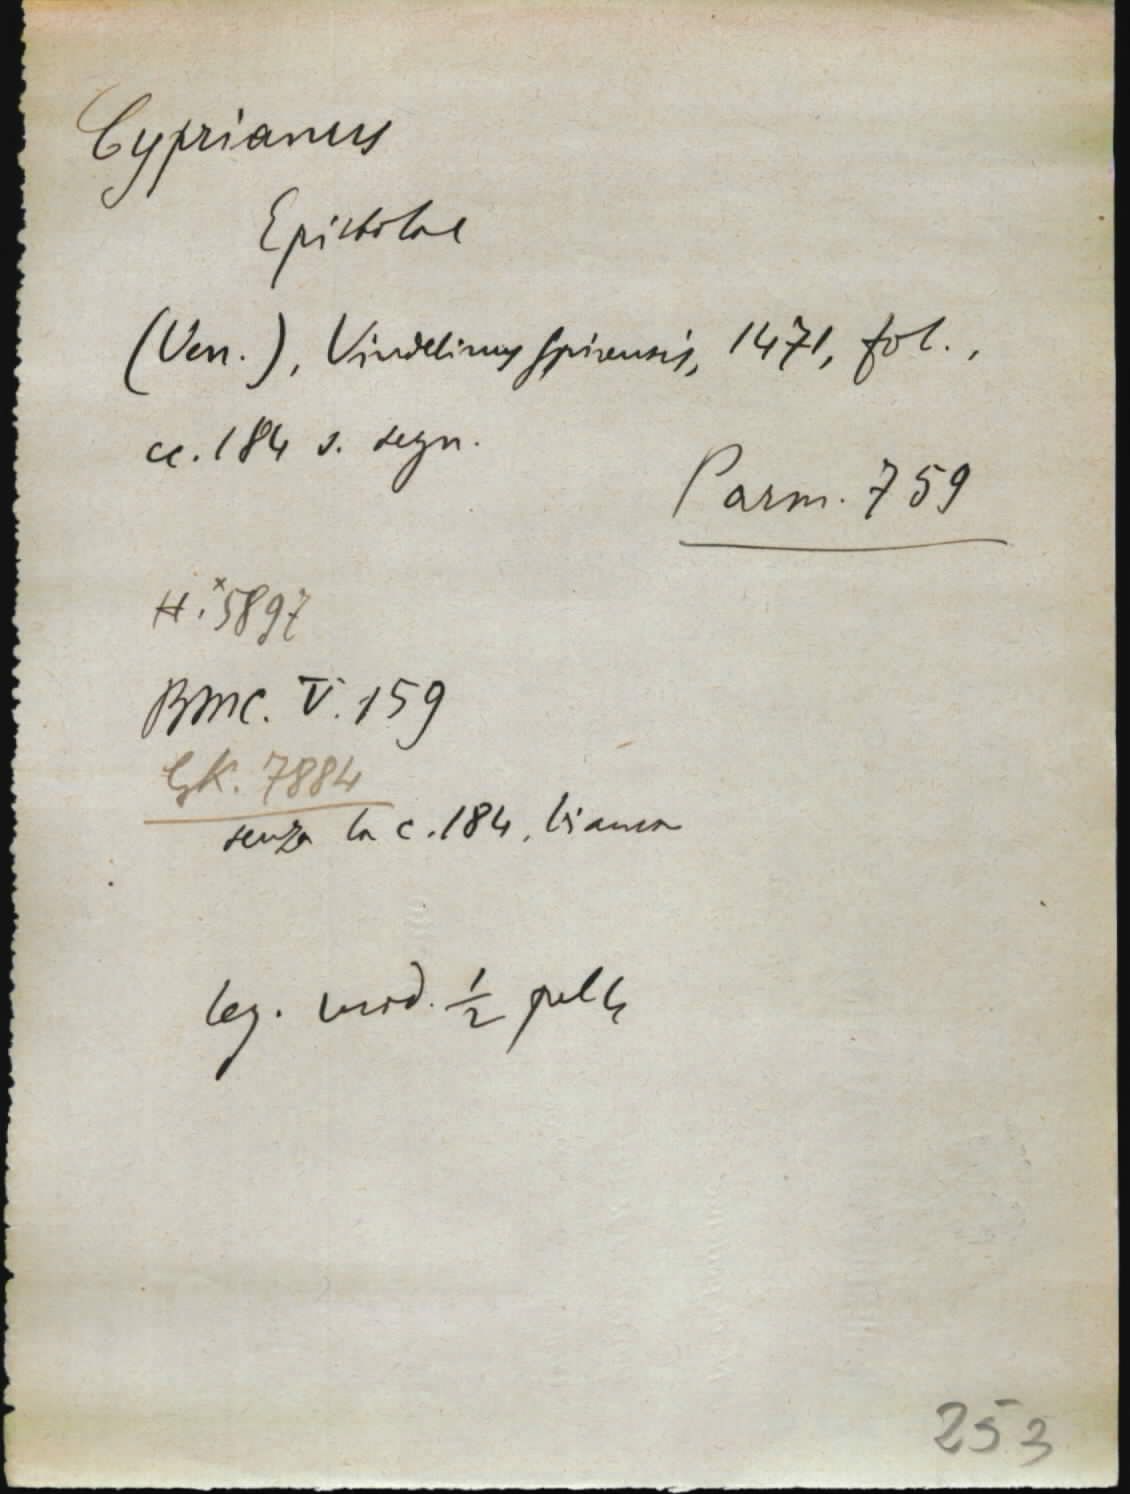 Cyprianus
Epistolae
(Ven.), Vindelinus Spirensis, 1471, fol.,
cc. 184 s. segn.
Parm. 759
H.*5897
BMC. V. 159
GK. 7884
senza la c. 184, bianca
leg. mod. ½ pelle
253